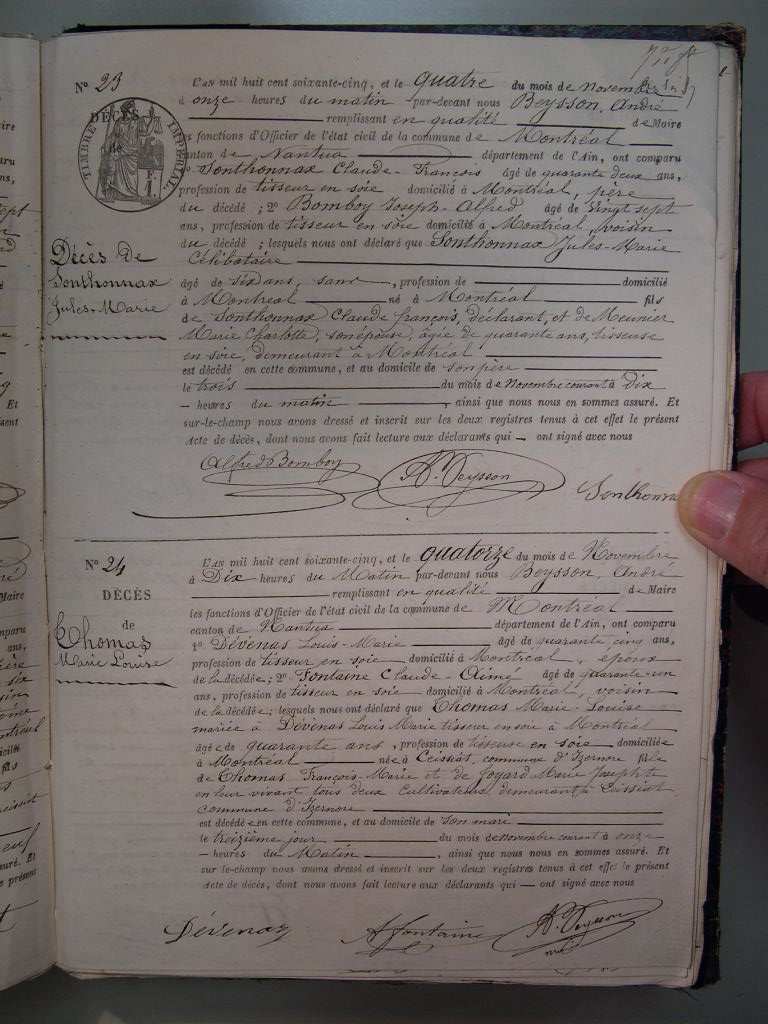 N° 23
L'AN mil huit cent soixante-cinq, et le quatre du mois de novembre
à onze heures du matin par-devant nous Beysson, André
DÉCÈS
remplissant en qualité de Maire
TIMBRE IMPÉRIAL
les fonctions d'Officier de l'état civil de la commune de Montréal
de
canton de Nantua département de l'Ain, ont comparu
1° Sonthonnax Claude-François âgé de quarante deux ans,
profession de tisseur en soie domicilié à Montréal, père
du décédé ; 2° Bomboy Joseph-Alfred âgé de vingt sept
ans, profession de tisseur en soie domicilié à Montréal, voisin
du décédé ; lesquels nous ont déclaré que Sonthonnax Jules-Marie
Décès de
Sonthonnax
Jules-Marie
Célibataire
âgé de six ans, sans, profession de domicilié
à Montréal né à Montréal fils
de Sonthonnax Claude françois, déclarant, et de Meunier
Marie Charlotte, son épouse, âgée de quarante ans, tisseuse
en soie, demeurant à Montréal
est décédé en cette commune, et au domicile de son père
le trois du mois de novembre courant à dix
heures du matin, ainsi que nous nous en sommes assuré. Et
sur-le-champ nous avons dressé et inscrit sur les deux registres tenus à cet effet le présent
Acte de décès, dont nous avons fait lecture aux déclarants qui — ont signé avec nous
Alfred Bomboy A. Beysson Sonthonna
N° 24
L'AN mil huit cent soixante-cinq, et le quatorze du mois de Novembre
à Dix heures du Matin par-devant nous Beysson, André
DÉCÈS
remplissant en qualité de Maire
les fonctions d'Officier de l'état civil de la commune de Montréal
de
canton de Nantua département de l'Ain, ont comparu
Thomas
Marie Louise
1° Dévenas Louis-Marie âgé de quarante cinq ans,
profession de tisseur en soie domicilié à Montréal, époux
de la décédée ; 2° Fontaine Claude-Aimé âgé de quarante-un
ans, profession de tisseur en soie domicilié à Montréal, voisin
de la décédée ; lesquels nous ont déclaré que Thomas Marie-Louise
mariée à Dévenas Louis Marie tisseur en soie à Montréal
âgée de quarante ans, profession de tisseuse en soie domiciliée
à Montréal née à Ceissiat, commune d'Izernore fille
de Thomas François-Marie et de Goyard Marie Josephte
en leur vivant tous deux Cultivateurs demeurant à Ceissiat
commune d'Izernore
est décédée en cette commune, et au domicile de son mari
le treizième jour du mois de novembre courant à onze
heures du Matin, ainsi que nous nous en sommes assuré. Et
sur-le-champ nous avons dressé et inscrit sur les deux registres tenus à cet effet le présent
Acte de décès, dont nous avons fait lecture aux déclarants qui — ont signé avec nous
Dévenas A fontaine A. Beysson